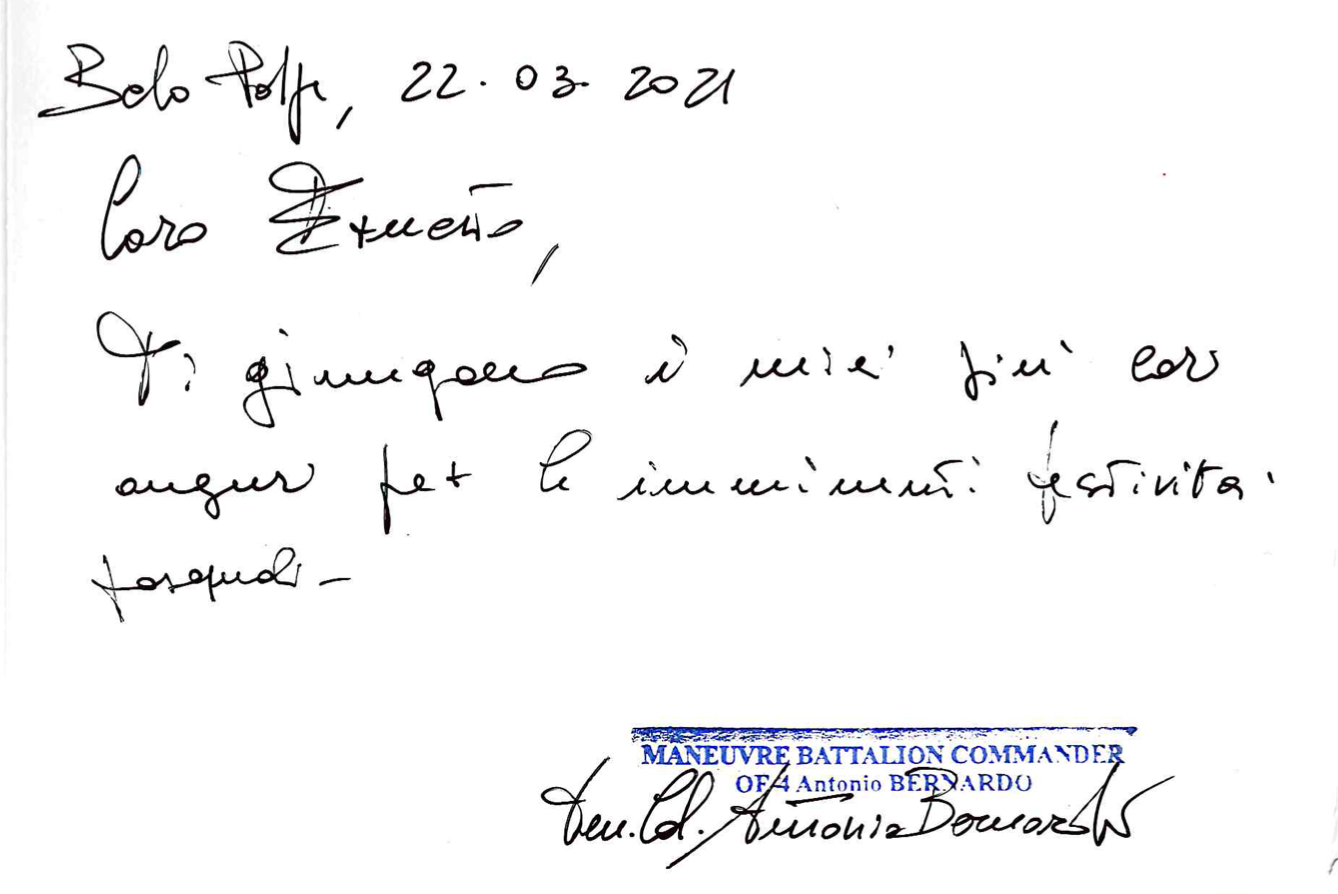 Belo Polje, 22.03.2021
Caro Ernesto,
Ti giungano i miei più cari
auguri per le imminenti festività
pasquali -
MANEUVRE BATTALION COMMANDER
OF-4 Antonio BERNARDO
Ten. Col. Antonio Bernardo